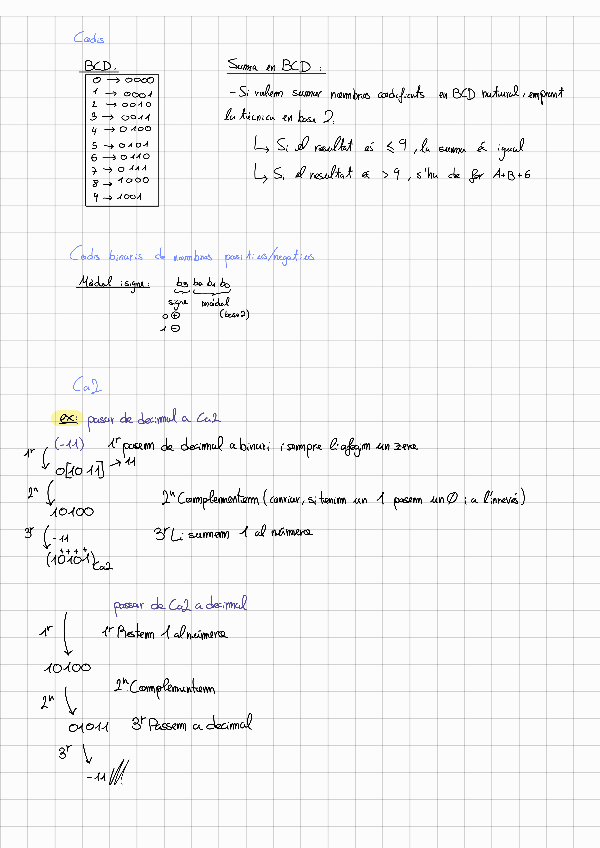 Codis
BCD.
0 → 0000
1 → 0001
2 → 0010
3 → 0011
4 → 0100
5 → 0101
6 → 0110
7 → 0111
8 → 1000
9 → 1001
Suma en BCD :
- Si volem sumar nombres codificats en BCD natural, emprant
la tècnica en base 2.
↳ Si el resultat és ≤ 9, la suma és igual
↳ Si el resultat és > 9, s'ha de fer A+B+6
Codis binaris de nombres positius/negatius
Mòdul i signe: b3 b2 b1 b0
signe mòdul
0 ⊕ (base 2)
1 ⊖
Ca2
ex: passar de decimal a Ca2
(-11) 1r passem de decimal a binari i sempre li afegim un zero
1r
0[1011] → 11
2n 2n Complementem (canviar, si tenim un 1 posem un 0 i a l'inrevés)
10100
3r -11 3r Li sumem 1 al número
++++
(10101)Ca2
passar de Ca2 a decimal
1r 1r Restem 1 al número
10100
2n Complementem
2n
01011 3r Passem a decimal
3r
-11